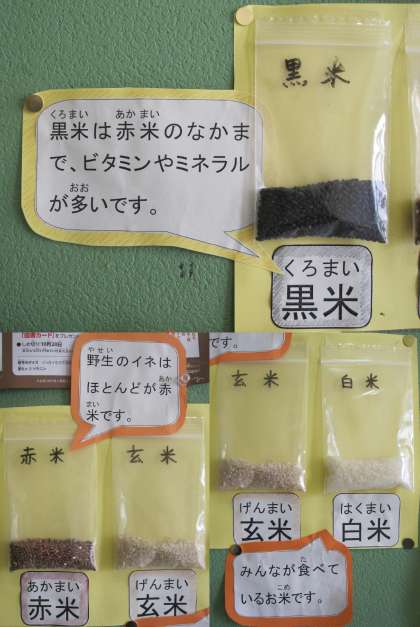 黒米
黒米は赤米のなかま
で、ビタミンやミネラル
が多いです。
くろまい
黒米
野生のイネは
ほとんどが赤
米です。
赤米
玄米
あかまい
赤米
げんまい
玄米
です。
玄米
白米
げんまい
玄米
はくまい
白米
みんなが食べて
いるお米です。